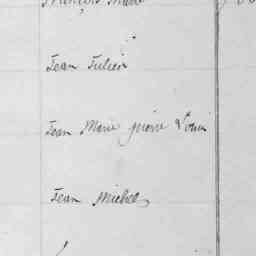 François Marie
Jean Julien
Jean Marie pierre Louis
Jean Michel